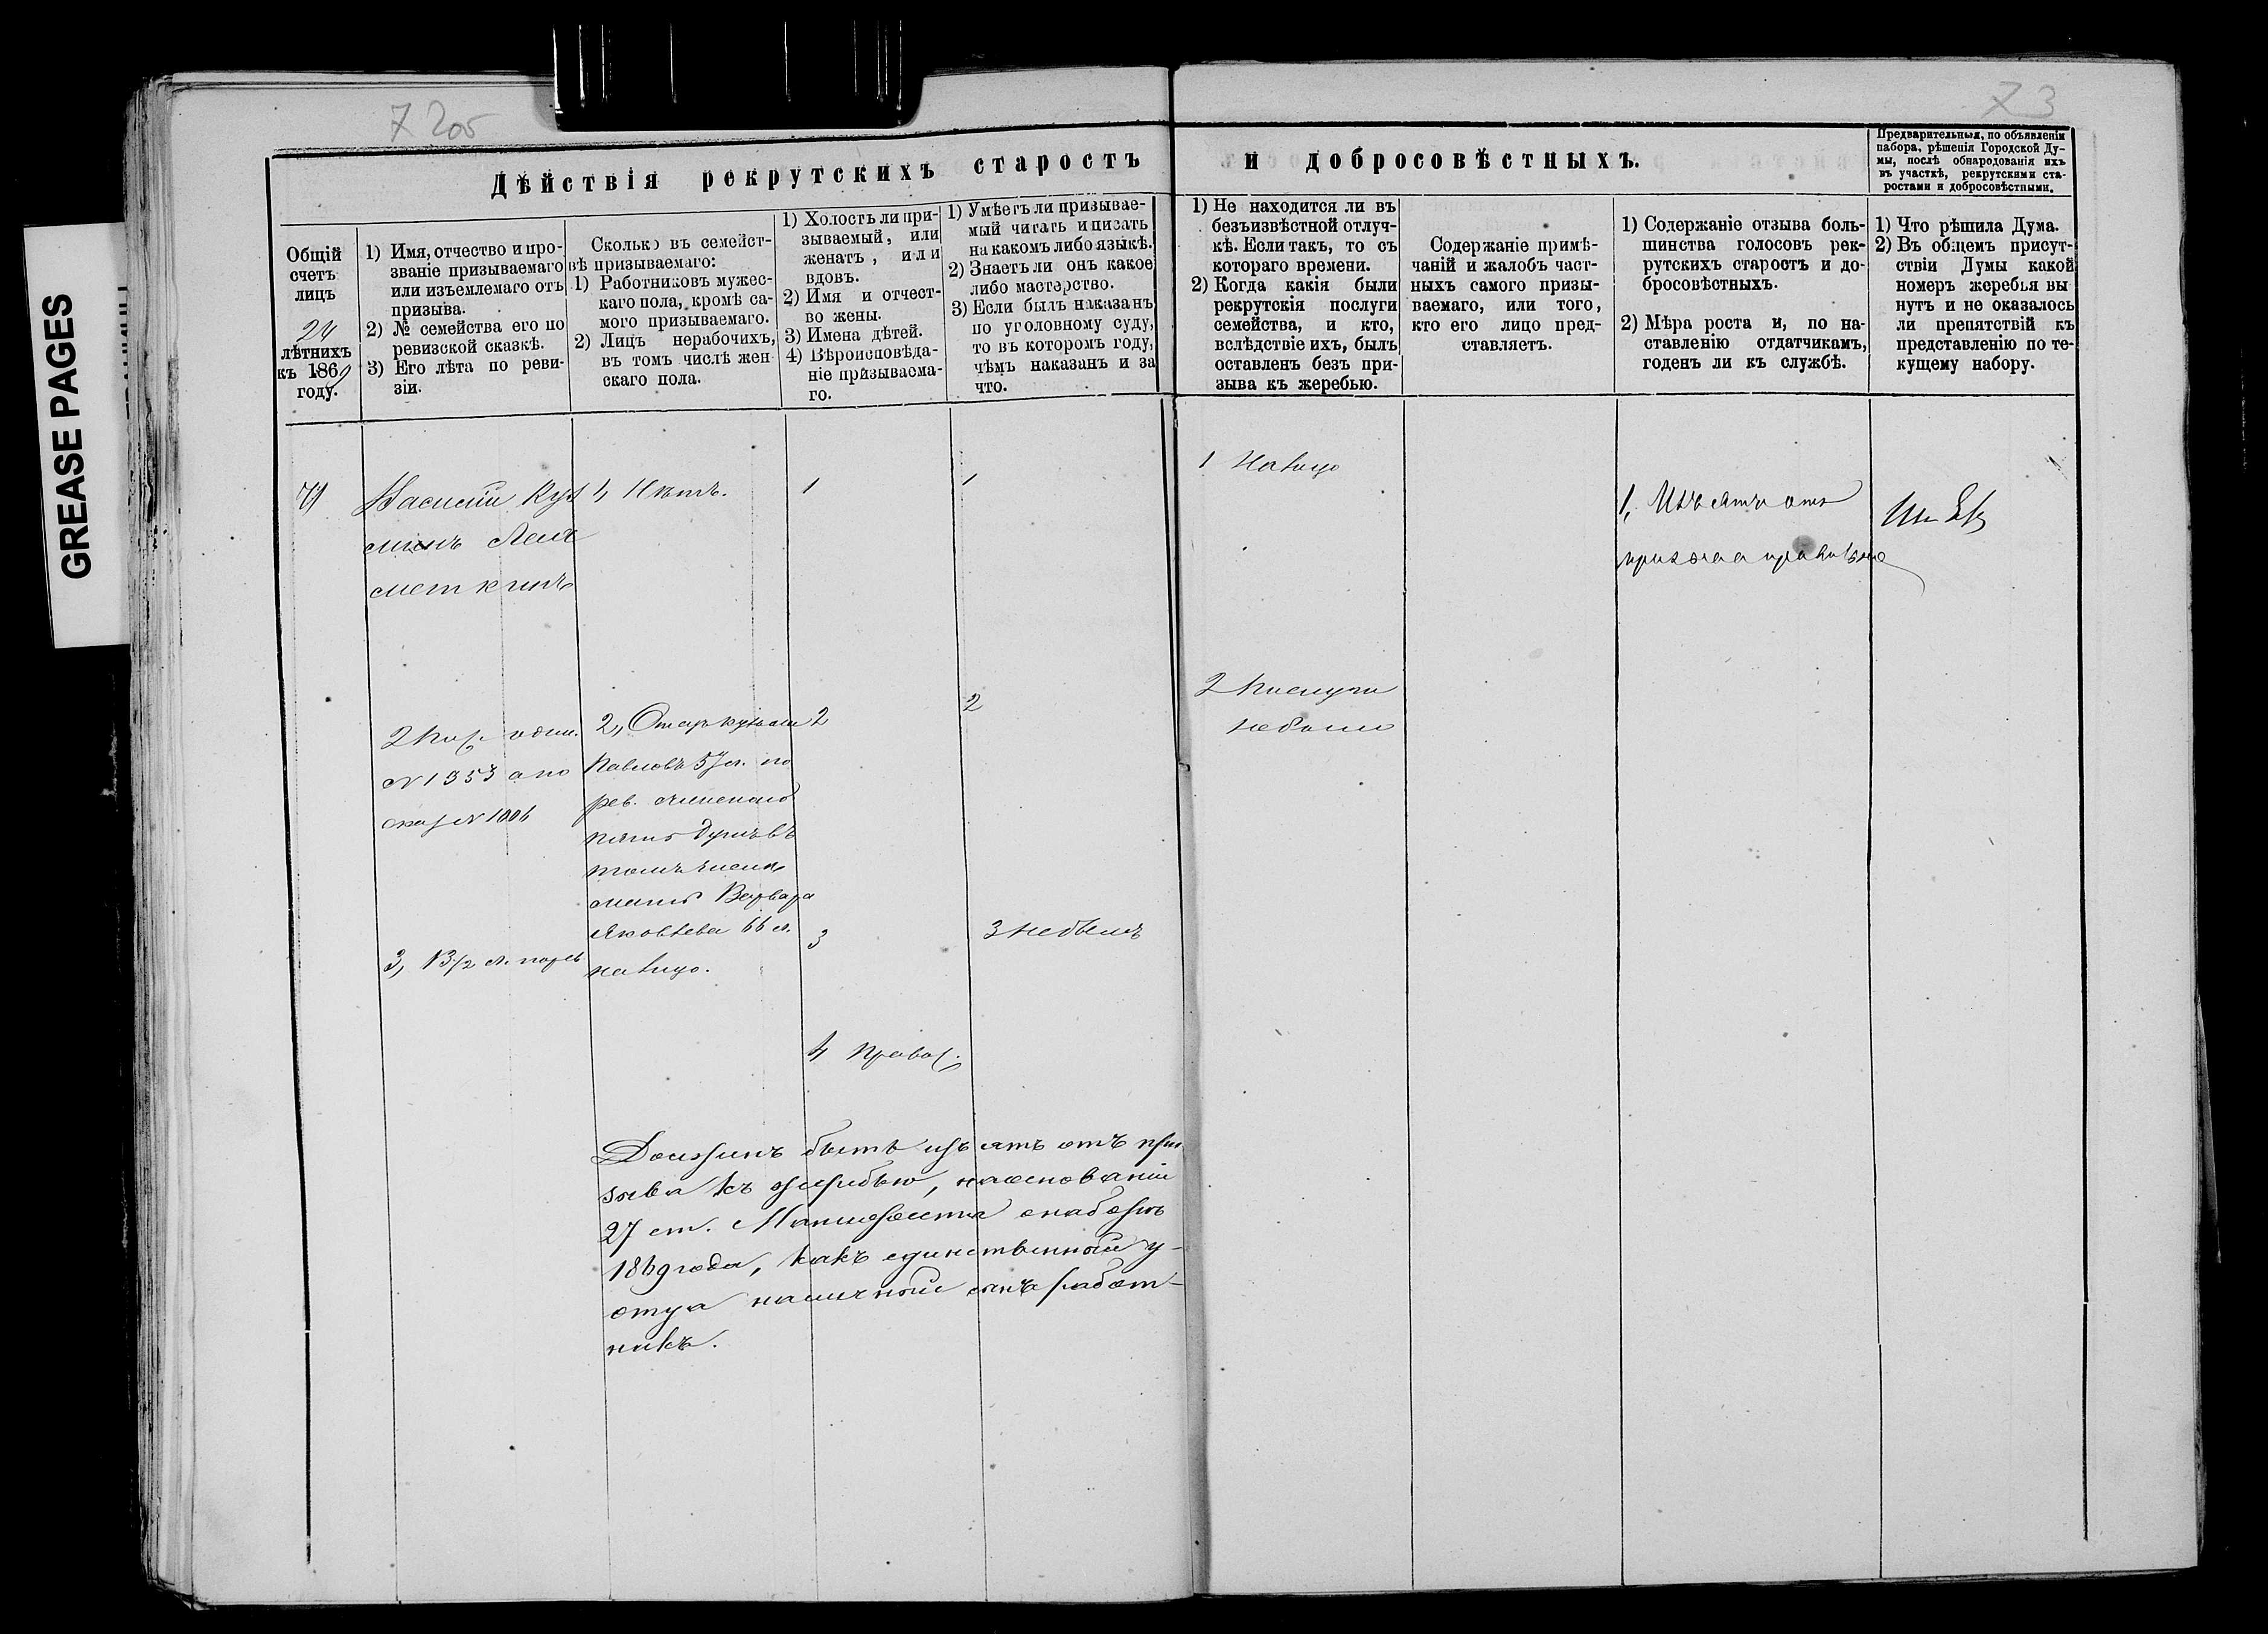 GREASE PAGES
7 205
73
Дѣйствія рекрутскихъ старостъ и добросовѣстныхъ.
Предварительныя, по объявленіи
набора, рѣшенія Городской Ду-
мы, послѣ обнародованія ихъ
въ участкѣ, рекрутскими ста-
ростами и добросовѣстными.
Общій
счетъ
лицъ
24
лѣтнихъ
къ 1869
году.
1) Имя, отчество и про-
званіе призываемаго
или изъемлемаго отъ
призыва.
2) № семейства его по
ревизской сказкѣ.
3) Его лѣта по реви-
зіи.
Сколько въ семейст-
вѣ призываемаго:
1) Работниковъ мужес-
каго пола, кромѣ са-
мого призываемаго.
2) Лицъ нерабочихъ,
въ томъ числѣ жен-
скаго пола.
1) Холостъ ли при-
зываемый, или
женатъ, или
вдовъ.
2) Имя и отчест-
во жены.
3) Имена дѣтей.
4) Вѣроисповѣда-
ніе призываема-
го.
1) Умѣетъ ли призывае-
мый читать и писать
на какомъ либо языкѣ.
2) Знаетъ ли онъ какое
либо мастерство.
3) Если былъ наказанъ
по уголовному суду,
то въ которомъ году,
чѣмъ наказанъ и за
что.
1) Не находится ли въ
безъизвѣстной отлуч-
кѣ. Если такъ, то съ
котораго времени.
2) Когда какія были
рекрутскія послуги
семейства, и кто,
вслѣдствіе ихъ, былъ
оставленъ безъ при-
зыва къ жеребью.
Содержаніе примѣ-
чаній и жалобъ част-
ныхъ самого призы-
ваемаго, или того,
кто его лицо пред-
ставляетъ.
1) Содержаніе отзыва боль-
шинства голосовъ рек-
рутскихъ старостъ и до-
бросовѣстныхъ.
2) Мѣра роста и, по на-
ставленію отдатчикамъ,
годенъ ли къ службѣ.
1) Что рѣшила Дума.
2) Въ общемъ присут-
ствіи Думы какой
номеръ жеребья вы
нутъ и не оказалось
ли препятствій къ
представленію по те-
кущему набору.
Василій Кузь
минъ
1, Нѣтъ.
1
1
1 Налицо
1, Изъятъ отъ
призыва правильно
2
№ 1353 а по
сказ № 1006
2, Отецъ Кузьма
Павловъ 57 л. по
рев.
пять душъ въ
томъ числѣ
мать Варвара
Яковлева 66 л.
налицо.
2
2
2 Послуги
небыло
3, 13½ л. по рев
3
3 небылъ
4 Правос.
Долженъ быть изъятъ отъ при
зыва къ жеребью, на основаніи
27 ст. Манифеста о наборѣ
1869 года, какъ единственный у
отца наличный сынъ работ-
никъ.